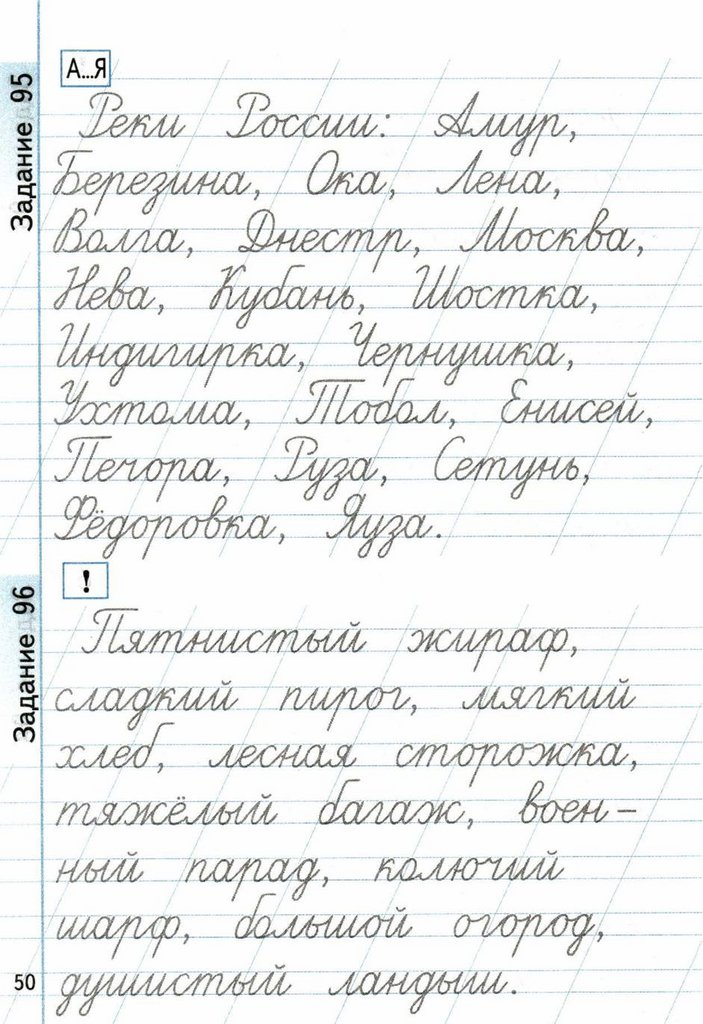 Задание 95
А...Я
Реки России: Амур,
Березина, Ока, Лена,
Волга, Днестр, Москва,
Нева, Кубань, Шостка,
Индигирка, Чернушка,
Ухтома, Тобол, Енисей,
Печора, Руза, Сетунь,
Фёдоровка, Яуза.
Задание 96
!
Пятнистый жираф,
сладкий пирог, мягкий
хлеб, лесная сторожка,
тяжёлый багаж, воен-
ный парад, колючий
шарф, большой огород,
душистый ландыш.
50